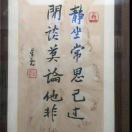 靜坐常思己過
閒談莫論他非